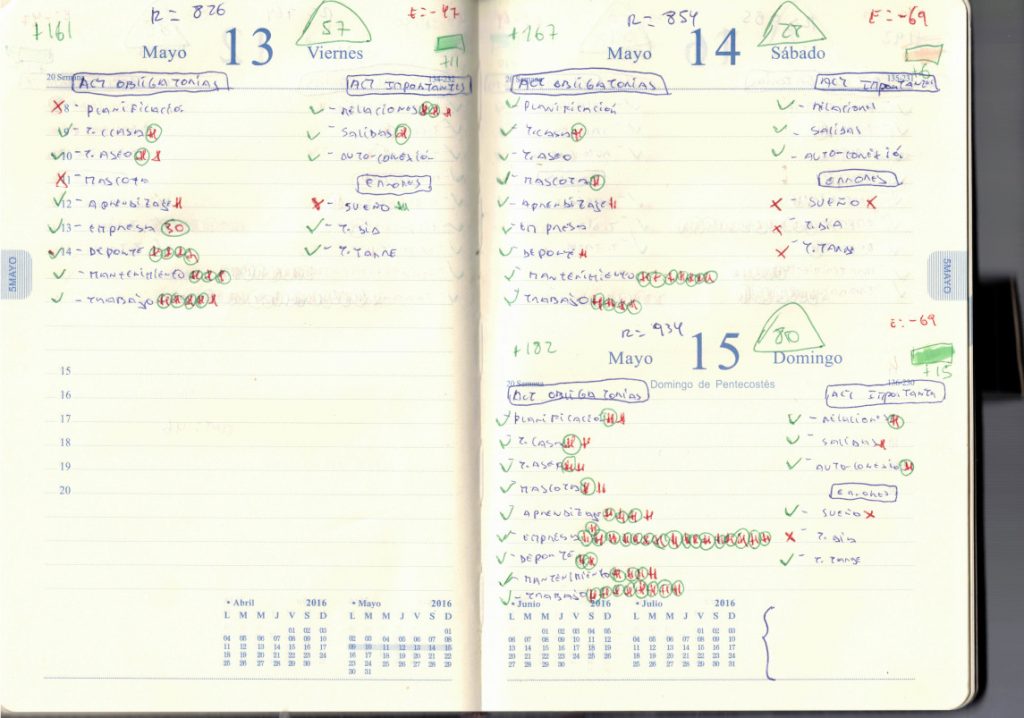 +161 R= 826 57 E:-47
Mayo 13 Viernes
+11
20 Semana 134-232
ACT OBLIGATORIAS
8 - PLANIFICACIÓN
9 - T. CASA
10 - T. ASEO
11 - MASCOTA
12 - APRENDIZAJE
13 - EMPRESA 30
14 - DEPORTE
- MANTENIMIENTO
- TRABAJO
ACT IMPORTANTES
- RELACIONES
- SALIDAS
- AUTO-CONEXIÓN
ERRORES
- SUEÑO
- T. DÍA
- T. TARDE
15
16
17
18
19
20
5MAYO
• Abril 2016
L M M J V S D
01 02 03
04 05 06 07 08 09 10
11 12 13 14 15 16 17
18 19 20 21 22 23 24
25 26 27 28 29 30
• Mayo 2016
L M M J V S D
01
02 03 04 05 06 07 08
09 10 11 12 13 14 15
16 17 18 19 20 21 22
23 24 25 26 27 28 29
30 31
+167 R= 854 28 E:-69
Mayo 14 Sábado
+6
20 Semana 135-231
ACT OBLIGATORIAS
- PLANIFICACIÓN
- T. CASA
- T. ASEO
- MASCOTA
- APRENDIZAJE
- EMPRESA
- DEPORTE
- MANTENIMIENTO
- TRABAJO
ACT IMPORTANTES
- RELACIONES
- SALIDAS
- AUTO-CONEXIÓN
ERRORES
- SUEÑO
- T. DÍA
- T. TARDE
5MAYO
+182 R= 934 80 E:-69
Mayo 15 Domingo
+15
20 Semana Domingo de Pentecostés 136-230
ACT OBLIGATORIAS
- PLANIFICACIÓN
- T. CASA
- T. ASEO
- MASCOTAS
- APRENDIZAJE
- EMPRESA
- DEPORTE
- MANTENIMIENTO
- TRABAJO
ACT IMPORTANTE
- RELACIONES
- SALIDAS
- AUTO-CONEXIÓN
ERRORES
- SUEÑO
- T. DÍA
- T. TARDE
• Junio 2016
L M M J V S D
01 02 03 04 05
06 07 08 09 10 11 12
13 14 15 16 17 18 19
20 21 22 23 24 25 26
27 28 29 30
• Julio 2016
L M M J V S D
01 02 03
04 05 06 07 08 09 10
11 12 13 14 15 16 17
18 19 20 21 22 23 24
25 26 27 28 29 30 31